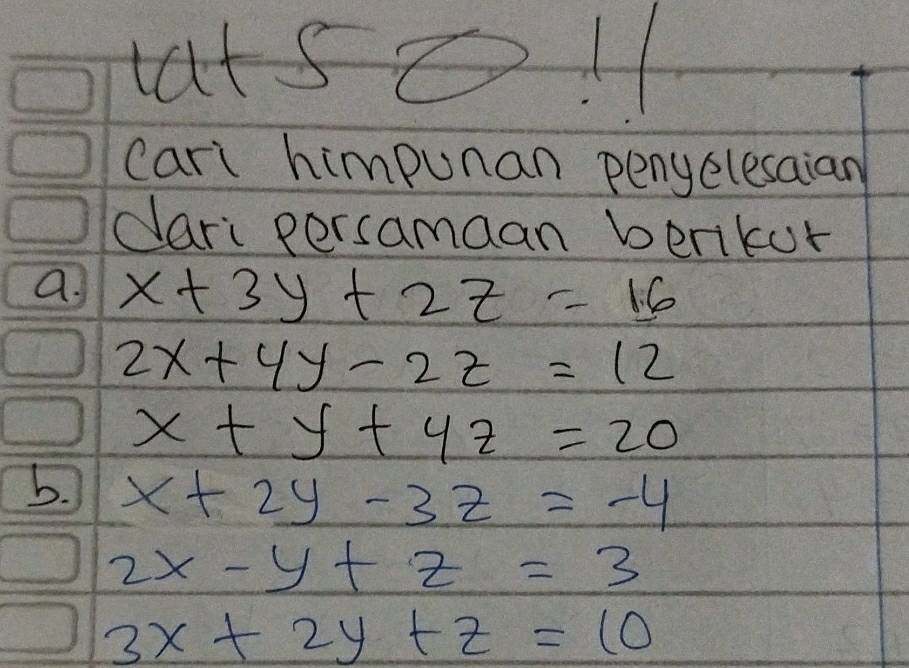 Lat so !!
cari himpunan penyelesaian
dari persamaan berikut
a. x + 3y + 2z = 16
2x + 4y - 2z = 12
x + y + 4z = 20
b. x + 2y - 3z = -4
2x - y + z = 3
3x + 2y + z = 10